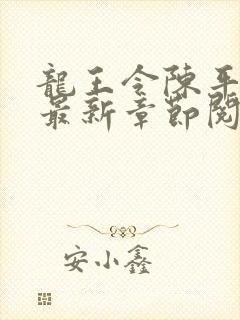 龍王令陳平
最新章節閱
安小鑫